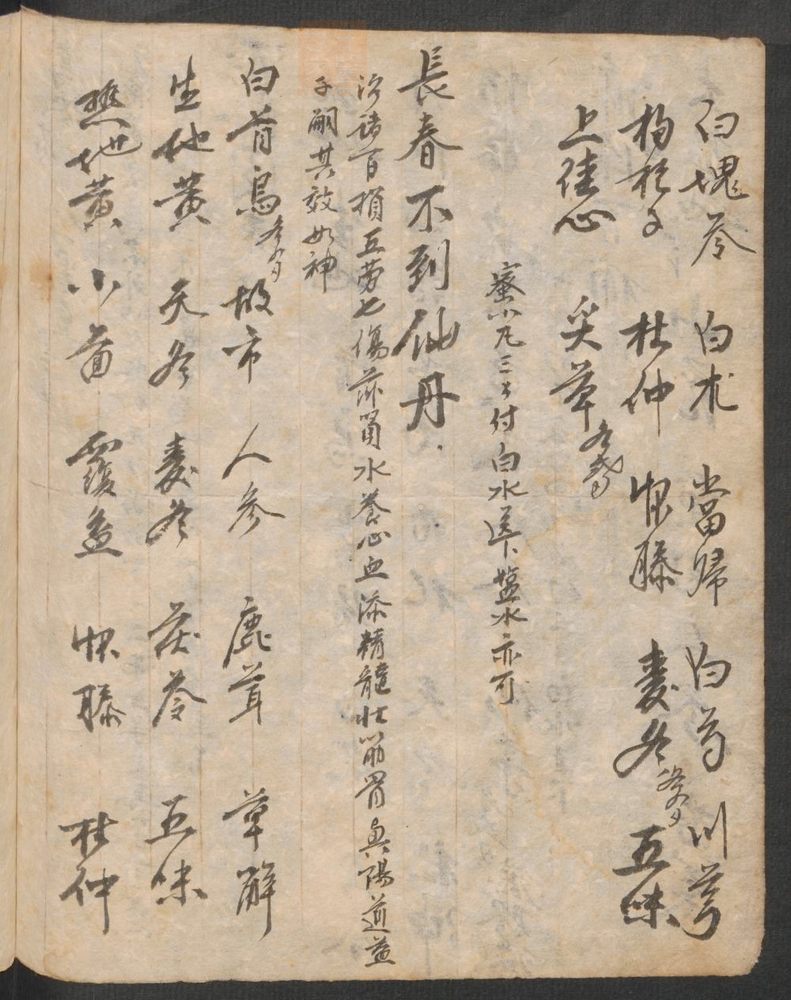 白塊苓 白朮 當歸 白芍 川芎
枸杞子 杜仲 牛膝 麦冬 五味
上佳心 炙草
蜜小丸三十付白水送下塩水亦可
長春不到仙丹
治諸百損五劳七傷 水养心血添精髓壮筋骨兴陽道益
子嗣其效如神
白首烏 故市 人参 鹿茸 草解
生地黄 天冬 麦冬 茯苓 五味
熟地黄 小茴 覆盆 牛膝 杜仲